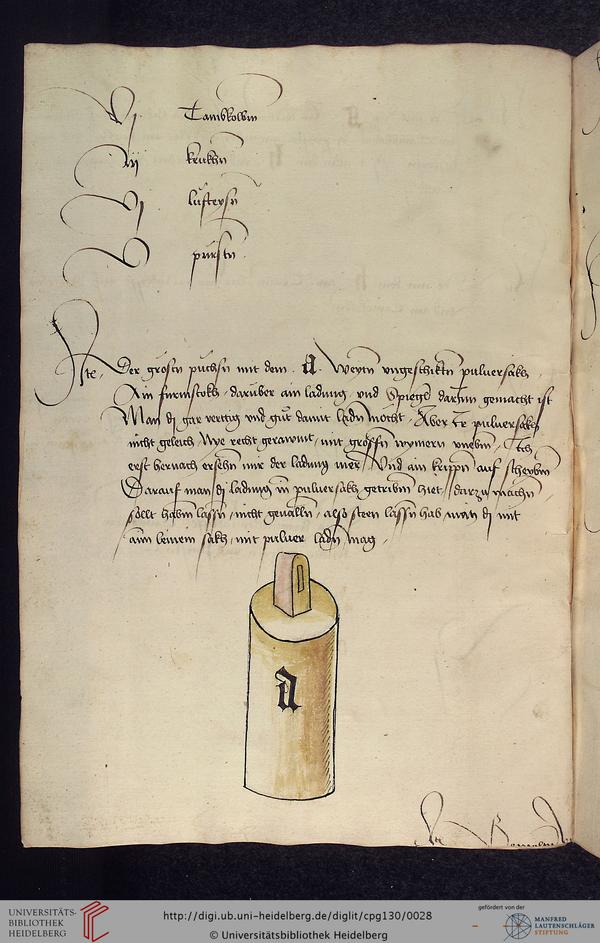 vj Tambkolbm
iij krukhn
vj lüfteysn
v pürstn
Der grosn puchsn mit dem . a . Weytn ungeschiktn pulversakh
Ain furmstokh, darüber ain ladung, und Spiegl darinn gemacht ist
Man dj gar vertig und gut damit ladn mocht. Aber Ir pulversakh
nicht geleich, Wye recht geraumt, mit grossn
erst hernach ersehn mir der ladung mer, Und ain krippn auf scheybm
Darauf man dj ladung in pulversakh getribm hiet, darzu machn
sollt habm lassn, nicht gevalln, also steen lassn hab, man dj mit
aim leinein sakh, mit pulver ladn mag.
a
UNIVERSITÄTS-
BIBLIOTHEK
HEIDELBERG
http://digi.ub.uni-heidelberg.de/diglit/cpg130/0028
© Universitätsbibliothek Heidelberg
gefördert von der
MANFRED
LAUTENSCHLÄGER
STIFTUNG